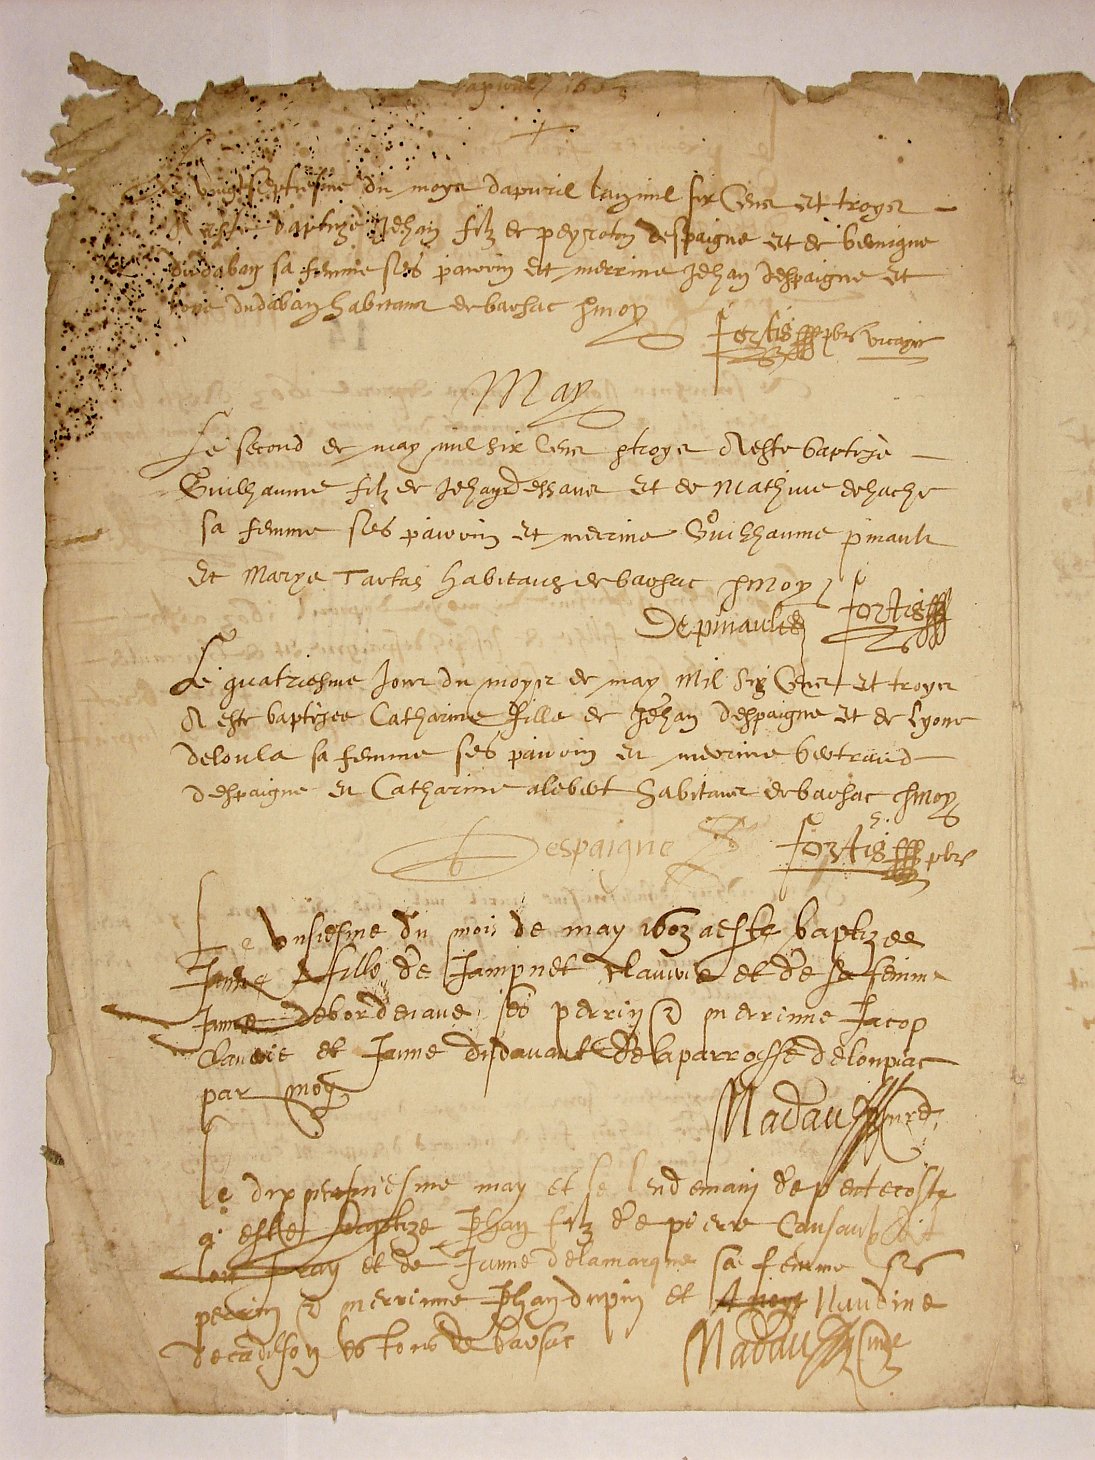 dapvril 1603
vingtseptiesme du moys dapvril lan mil six Cens et troys
A este baptizé Jehan filz de peyroton despaigne et de
dudaban sa femme ses parrin et merrine Jehan despaigne et
dudaban habitans de barsac p moy
fortis pbr vicaire
May
Le second de may mil six Cens troys A este baptizé
Guilhaume filz de Jehan dessans et de Mathive dehache
sa femme ses parrin et merrine Guilhaume pinault
et Marye Tartas habitans de barsac p moy
De pinault fortis
Le quatriesme Jour du moys de may Mil Six Cens et troys
A este baptizee Catharine fille de Jehan despaigne et de Lyone
deloula sa femme ses parrin et merrine bertrand
despaigne et Catharine alebert habitans de barsac p moy
Despaigne fortis pbr
Le unsiesme du mois de may 1603 a este baptizee
Janne fille de Jampnet Clauerie et de sa femme
Janne debordenaue ses perrin & merrinne Jacop
Clauerie et Janne dudauant de la parrosse de loupiac
par moy
Madau
Le may et le lendemain de pentecoste
a este baptize Jhan filz de pierre Cansau dit
lou Jray et de Janne delamarque sa femme ses
perrin & merrinne Jhan dupin et Naudine
de barsac
Madau